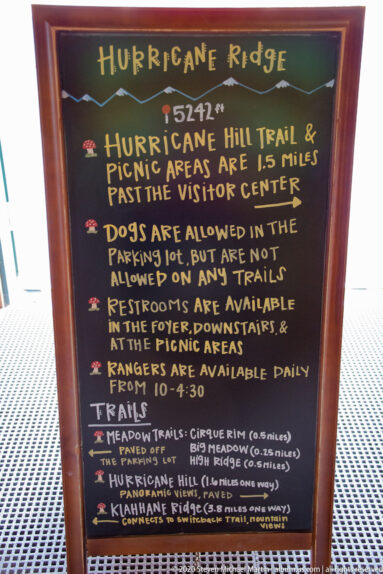 HURRICANE RIDGE
5242 ft
HURRICANE HILL TRAIL &
PICNIC AREAS ARE 1.5 MILES
PAST THE VISITOR CENTER
DOGS ARE ALLOWED IN THE
PARKING LOT, BUT ARE NOT
ALLOWED ON ANY TRAILS
RESTROOMS ARE AVAILABLE
IN THE FOYER, DOWNSTAIRS, &
AT THE PICNIC AREAS
RANGERS ARE AVAILABLE DAILY
FROM 10-4:30
TRAILS
MEADOW TRAILS: CIRQUE RIM (0.5 MILES)
PAVED OFF BIG MEADOW (0.25 MILES)
THE PARKING LOT HIGH RIDGE (0.5 MILES)
HURRICANE HILL (1.6 MILES ONE WAY)
PANORAMIC VIEWS, PAVED
KLAHHANE RIDGE (3.8 MILES ONE WAY)
CONNECTS TO SWITCHBACK TRAIL, MOUNTAIN
VIEWS
© 2020 Steven Michael Martin